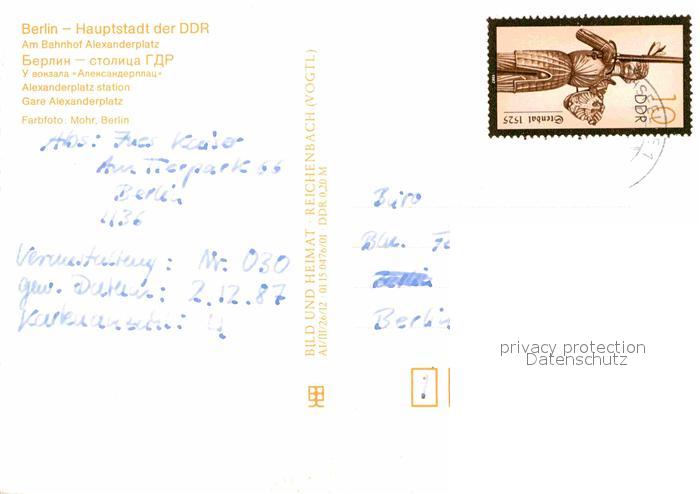 Berlin – Hauptstadt der DDR
Am Bahnhof Alexanderplatz
Берлин – столица ГДР
У вокзала «Александерплац»
Alexanderplatz station
Gare Alexanderplatz
Farbfoto: Mohr, Berlin
Abs: Kaiser
Am Tierpark 66
Berlin
1136
Veranstaltung: Nr. 030
gew. Datum: 2.12.87
Kartenanzahl: 4
BILD UND HEIMAT · REICHENBACH (VOGTL)
A1/III/26/12 01 15 0476/01 DDR 0,20 M
Stendal 1525
10
DDR
Büro
Berlin
Berlin
privacy protection
Datenschutz